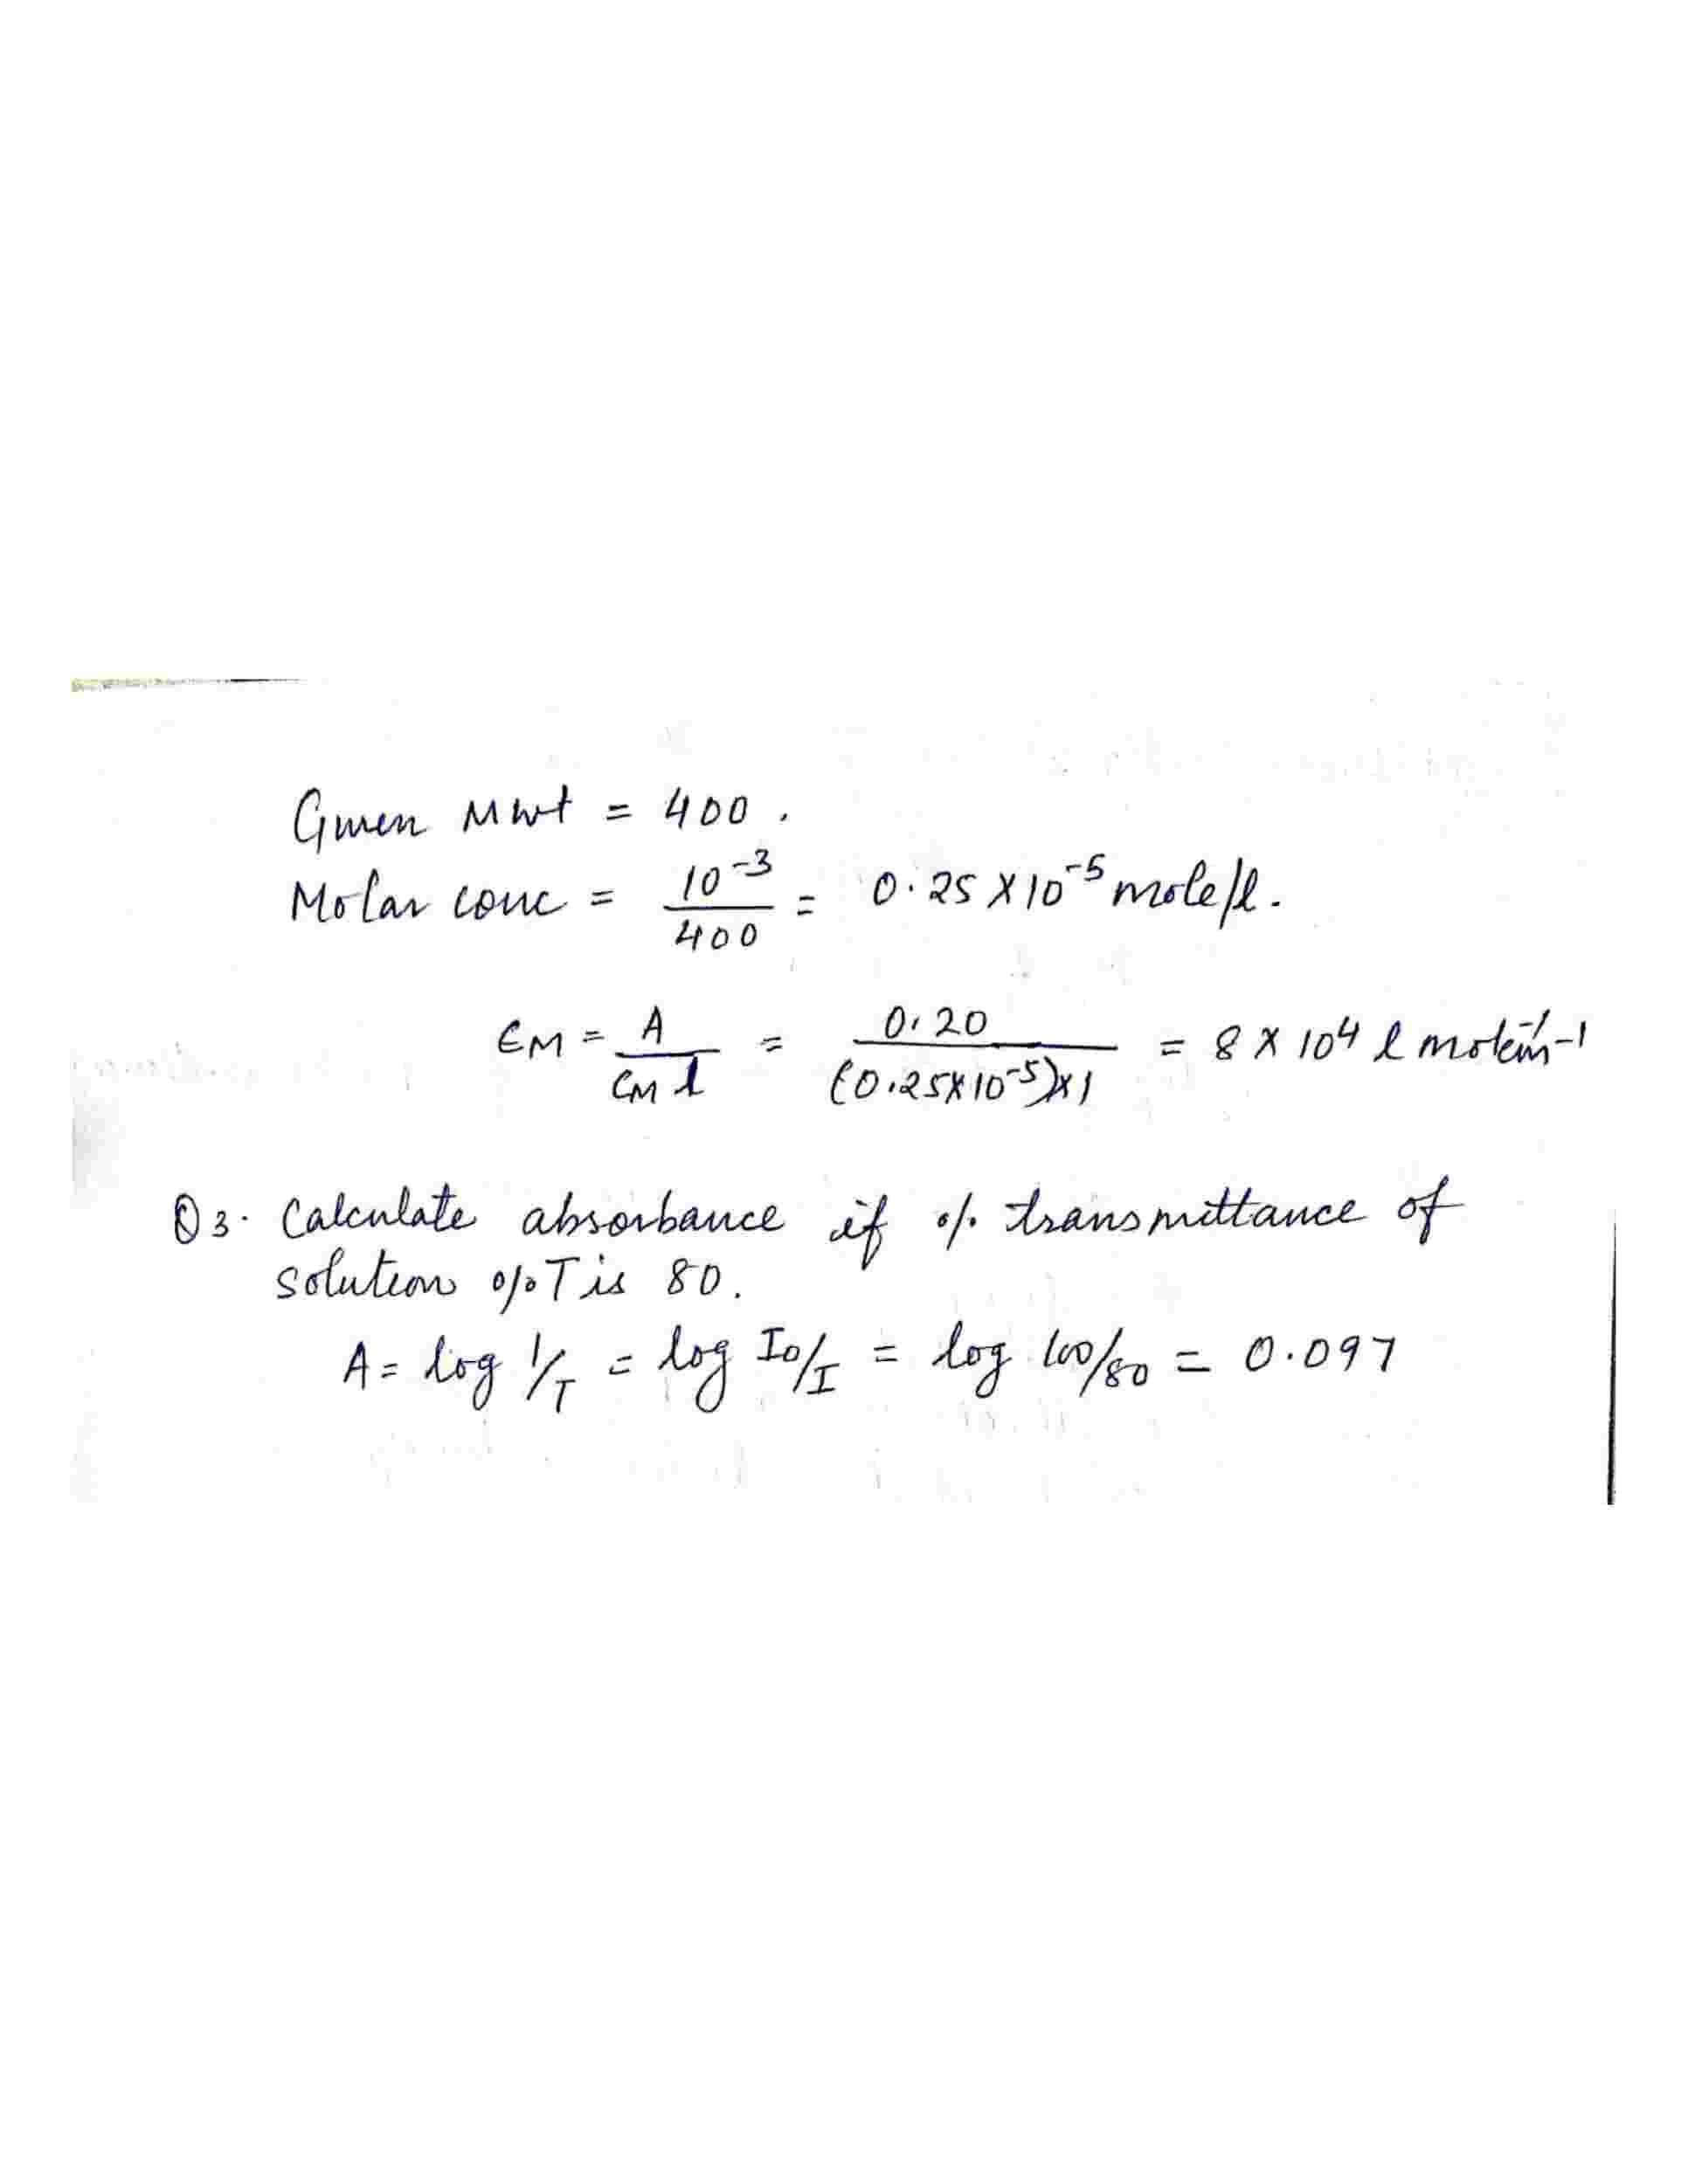 Given Mwt = 400.
Molar conc = 10⁻³/400 = 0.25 X 10⁻⁵ mole/l.
ЄM = A/CM l = 0.20/(0.25X10⁻⁵)X1 = 8 X 10⁴ l mole⁻¹cm⁻¹
Q3. Calculate absorbance if % transmittance of
solution %T is 80.
A = log 1/T = log I0/I = log 100/80 = 0.097